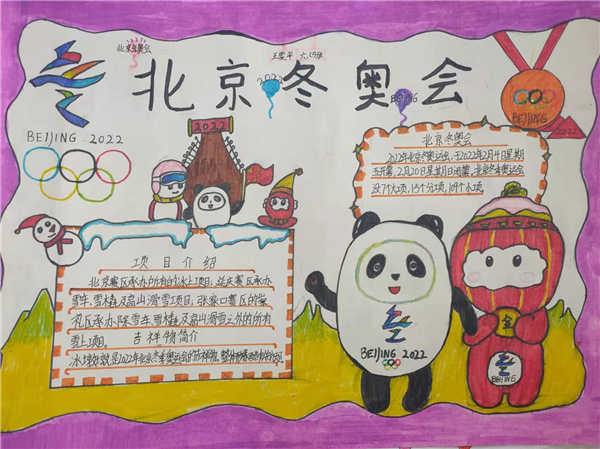 北京冬奥会
北京冬奥会
六.
2022
BEIJING
BEIJING 2022
2022
2022
北京冬奥会
2022年北京冬奥运会,于2022年2月4日星期
五开幕,2月20日星期日闭幕,北京冬季奥运会
设7个大项,15个分项,109个小项
项目介绍
北京赛区承办所有的冰上项目;延庆赛区承办
雪车、雪橇及高山滑雪项目;张家口赛区的崇
礼区承办除雪车、雪橇及高山滑雪之外的所有
雪上项目。
吉祥物简介
冰墩墩就是2022年北京冬季奥运会的吉祥物,
BEIJING 2022
BEIJING